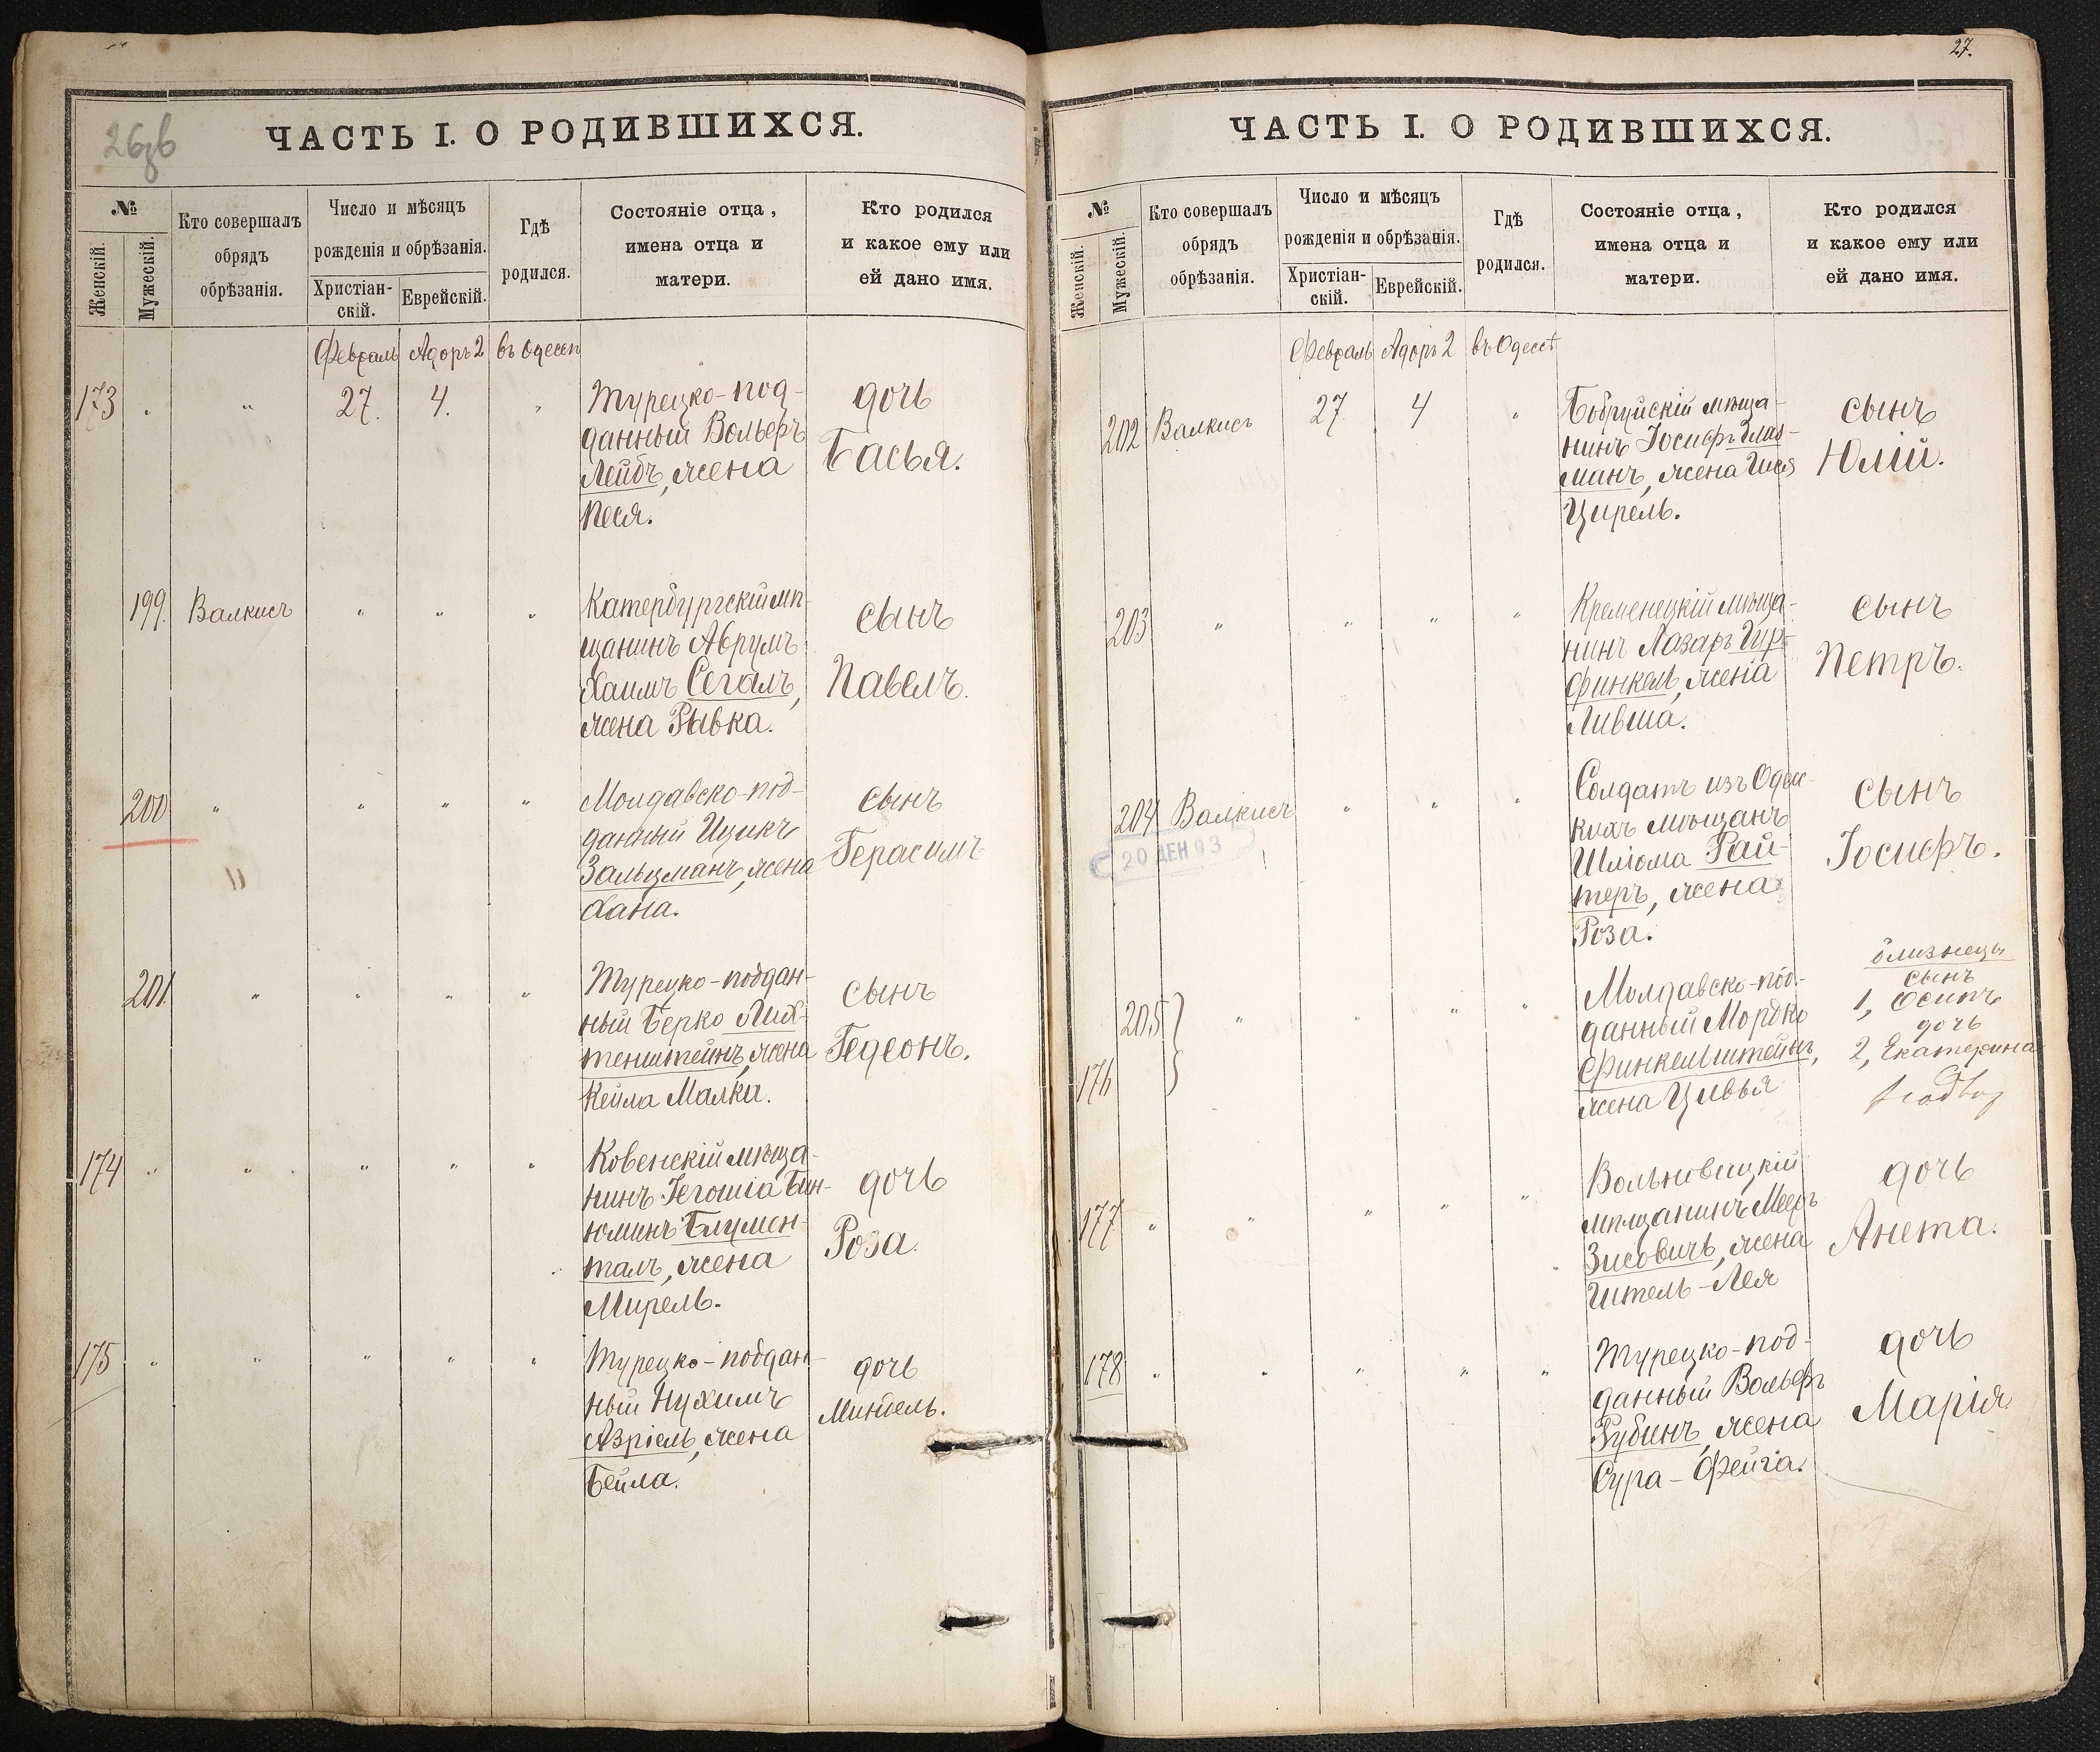 26зв
ЧАСТЬ I. О РОДИВШИХСЯ.
№
Женскій.
Мужескій.
Кто совершалъ
обрядъ
обрѣзанія.
Число и мѣсяцъ
рожденія и обрѣзанія.
Христіан-
скій.
Еврейскій.
Гдѣ
родился.
Состояніе отца,
имена отца и
матери.
Кто родился
и какое ему или
ей дано имя.
Февраль Адоръ 2 въ Одессѣ
173 27. 4.
Турецко-под-
данный Вольфъ
Лейбъ, жена
Песя.
дочь
Басья.
199. Валкисъ
Катербургскій мѣ-
щанинъ Аврумъ
Хаимъ Сегалъ,
жена Рывка.
сынъ
Павелъ.
200
Молдавско-под-
данный Ицикъ
Зальцманъ, жена
Хана.
сынъ
Герасимъ
201.
Турецко-поддан-
ный Берко Лих-
тенштейнъ, жена
Кейла Малка.
сынъ
Гедеонъ.
174
Ковенскій мѣща-
нинъ Іегошіа Бин-
юминъ Блумен-
талъ, жена
Мирель.
дочь
Роза.
175
Турецко-поддан-
ный Нухимъ
Азріель, жена
Бейла.
дочь
Миндель.
27.
ЧАСТЬ I. О РОДИВШИХСЯ.
№
Женскій.
Мужескій.
Кто совершалъ
обрядъ
обрѣзанія.
Число и мѣсяцъ
рожденія и обрѣзанія.
Христіан-
скій.
Еврейскій.
Гдѣ
родился.
Состояніе отца,
имена отца и
матери.
Кто родился
и какое ему или
ей дано имя.
Февраль Адоръ 2 въ Одессѣ
202 Валкисъ 27. 4
Бобруйскій мѣща-
нинъ Іосифъ Глаз-
манъ, жена
Цирель.
сынъ
Юлій.
203
Кременецкій мѣща-
нинъ Лазаръ Гур-
финкель, жена
Ливша.
сынъ
Петръ.
204 Валкисъ
20 ДЕН 93
Солдатъ изъ Одес-
кихъ мѣщанъ
Шліома Рай-
теръ, жена
Роза.
сынъ
Іосифъ.
205
176
Молдавско-под-
данный Мордко
Финкельштейнъ,
жена Цивья
близнецы
сынъ
1, Осипъ
дочь
2, Екатерина
177
мѣщанинъ Мееръ
Зисовичъ, жена
Гитель-Лея
дочь
Анета.
178
Турецко-под-
данный Вольфъ
Рубинъ, жена
Сура-Фейга.
дочь
Марія